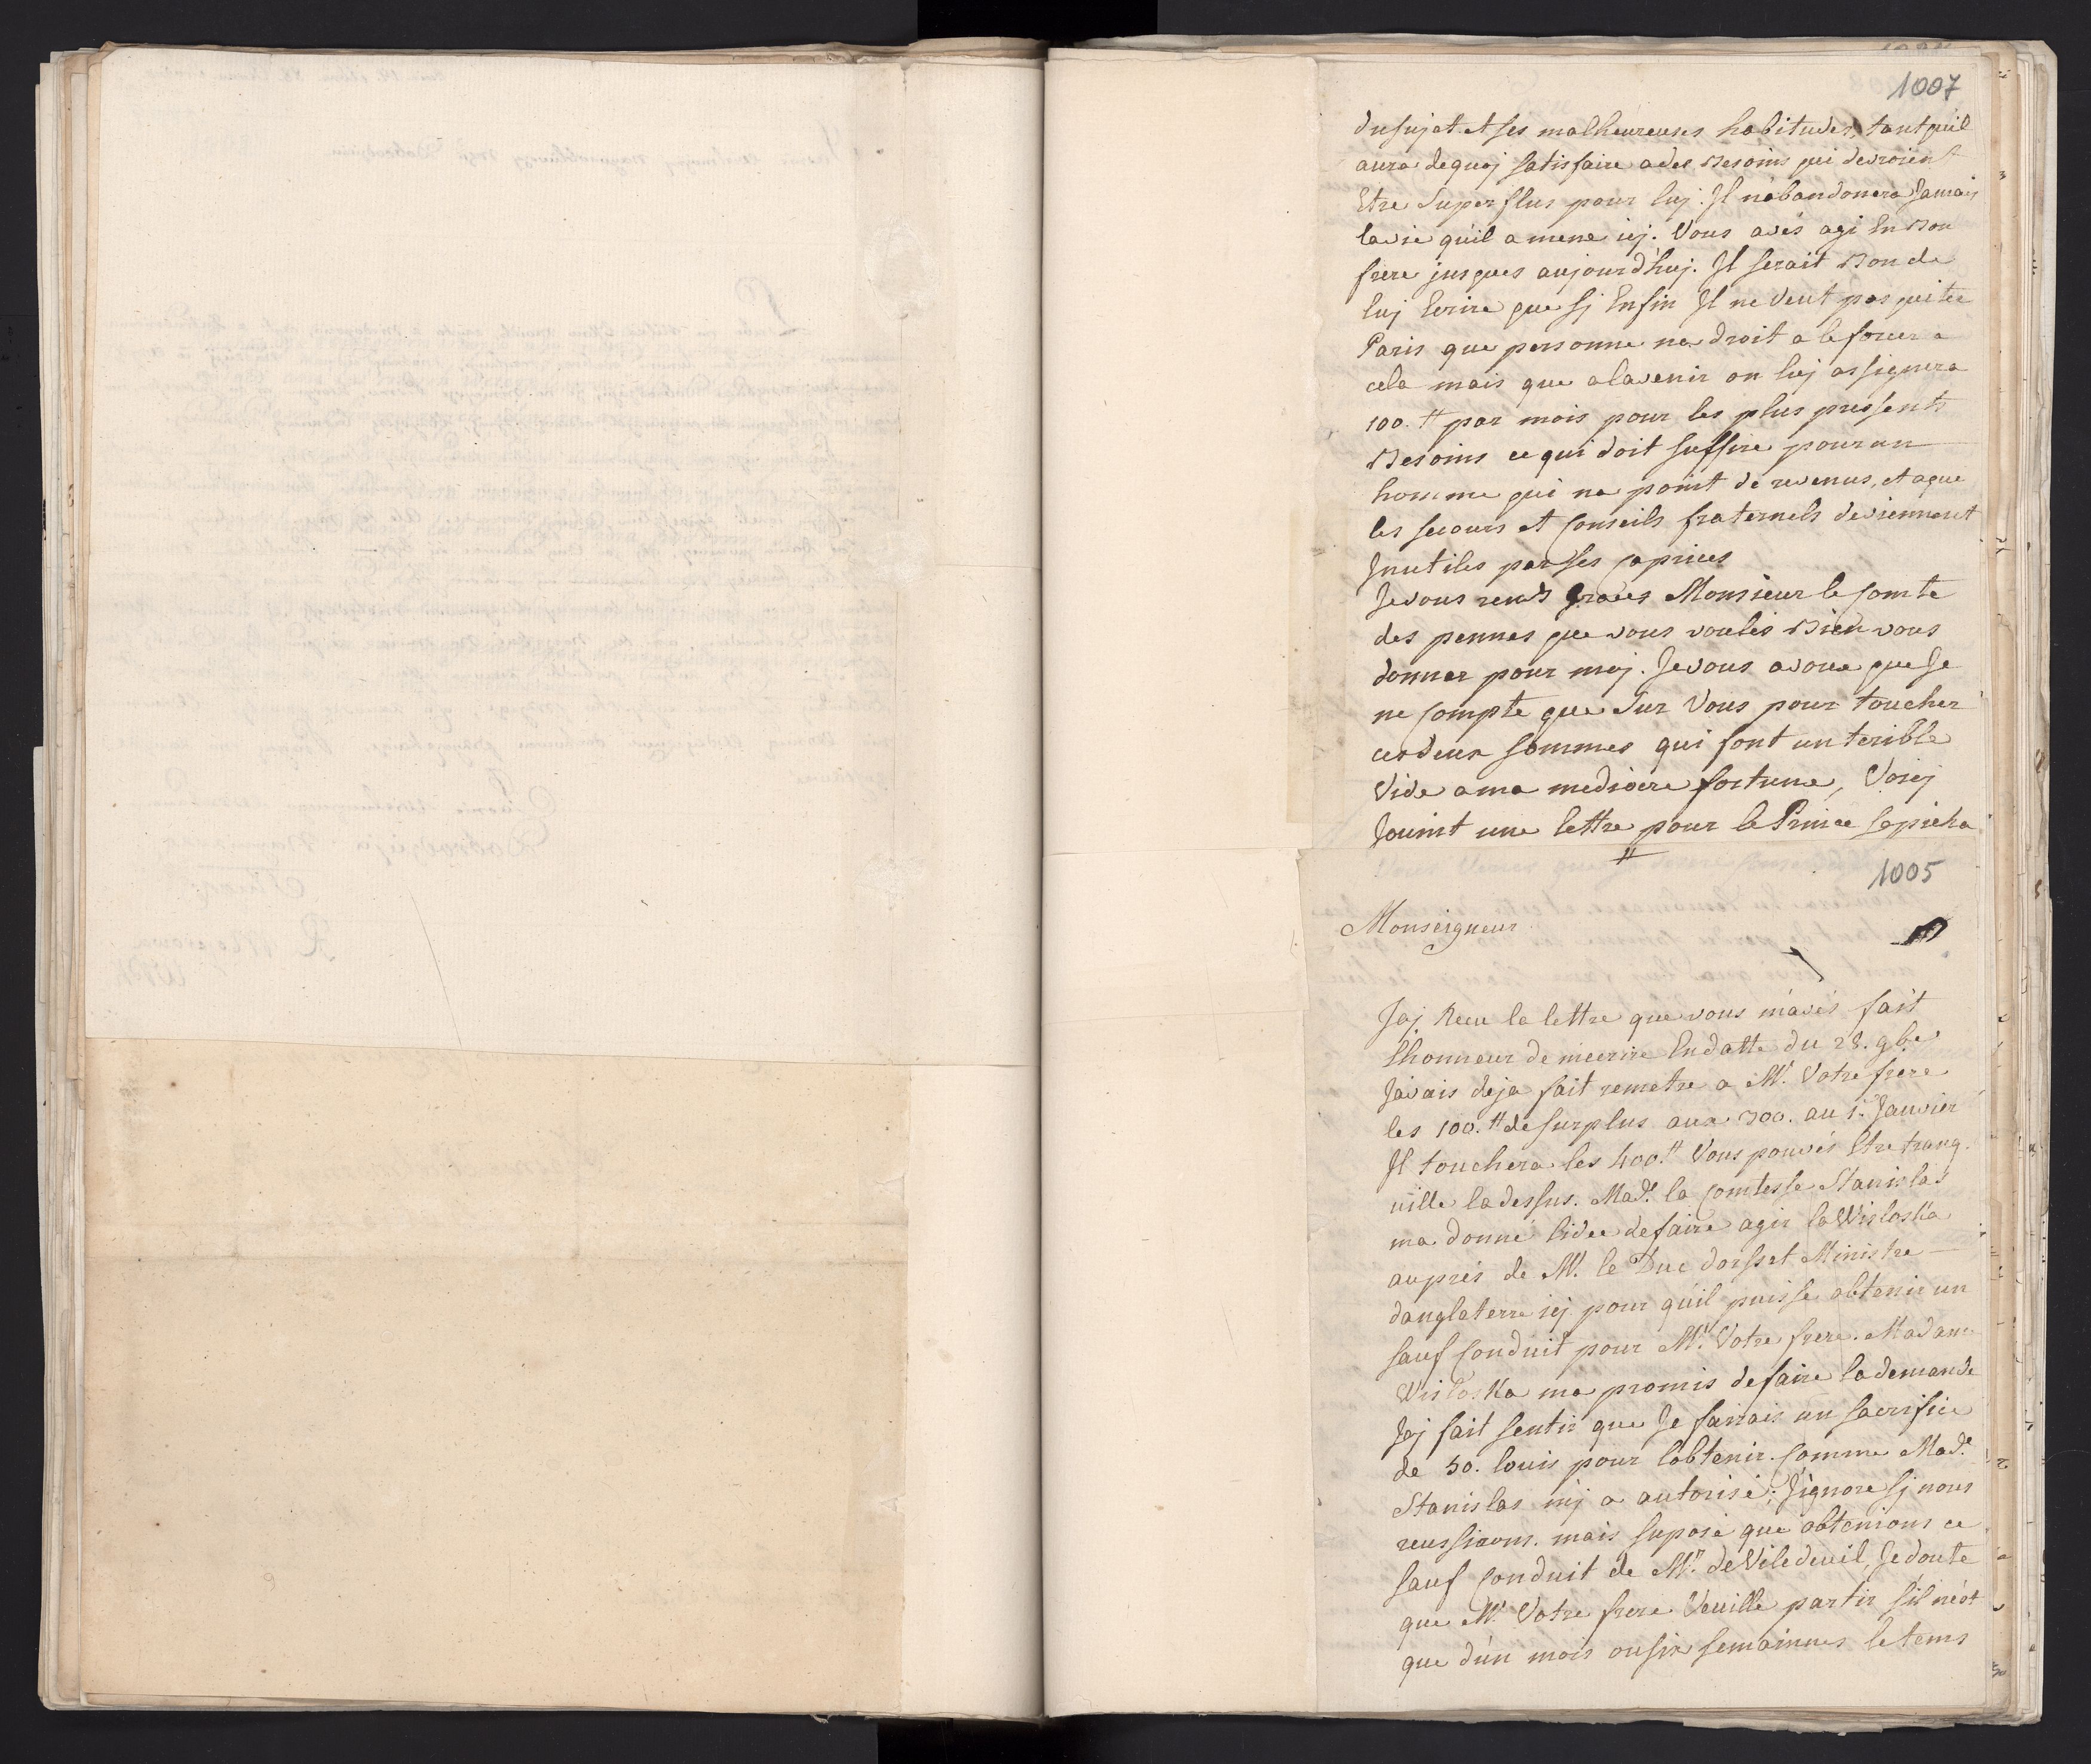 1007
du sujet et ses malheureuses habitudes, tant quil
aura dequoj satisfaire a des Besoins qui devroient
Etre Superflus pour luj. Il n'abandonera Jamais
lavie qu'il a mene icj. Vous avés agi En Bon
frere jusques aujourd'huj. Il serait Bon de
luj Ecrire que sj Enfin Il ne Veut pas quiter
Paris que personne na droit a le forcer a
cela mais que alavenir on luj assignera
100.# par mois pour les plus pressents
Besoins ce qui doit suffire pour un
homme qui na point de revenus, et aque
les secours et Conseils fraternels deviennent
Inutiles par ses Caprices
Je vous rends graces Monsieur le Comte
des pennes que vous voulés Bien vous
donner pour moj. Je vous avoue que Je
ne Compte que Sur Vous pour toucher
ces deux sommes qui font un terible
Vide a ma mediocre fortune, Voicj
Jouint une lettre pour le Prince Sapieha
#
1005
Monseigneur
Jaj Recu la lettre que vous m'avés fait
lhonneur de mecrire En datte du 28. 9bre
Javais deja fait remetre a Mr. Votre frere
les 100.# de surplus aux 300. au 1. Janvier
Il touchera les 400.# Vous pouvés Etre tranq.
uille ladessus. Made. la Comtesse Stanislas
ma donné lidee defaire agir la Wisloska
auprés de Mr. le Duc dorsset Ministre
danglaterre icj pour qu'il puisse obtenir un
sauf Conduit pour Mr. Votre frere. Madame
Wisloska ma promis defaire la demande
Jaj fait sentir que Je fairais un sacrifice
de 50. louis pour lobtenir. Comme Made.
Stanislas mj a autorisé; J'ignore sj nous
reussirons. mais suposé que obtenions ce
sauf Conduit de Mr. de Viledeuil, Je doute
que Mr. Votre frere Veuille partir s'il n'est
que d'un mois ou six semainnes le tems